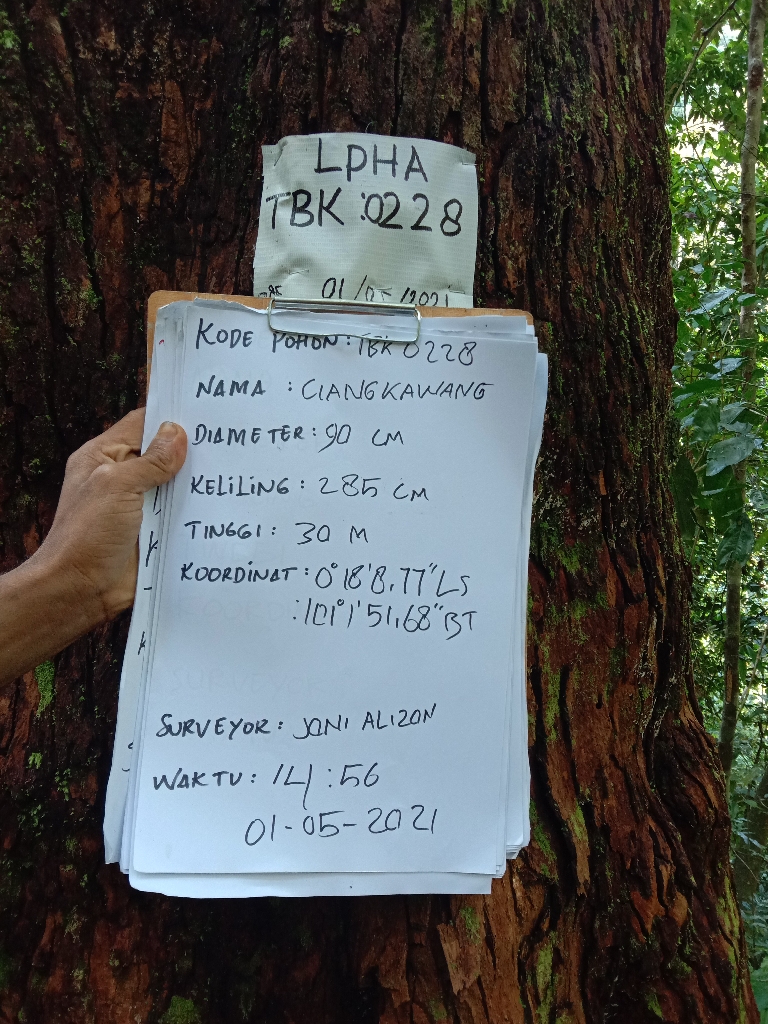 LPHA
TBK :0228
01/05/2021
KODE POHON : TBK 0228
NAMA : CIANGKAWANG
DIAMETER : 90 CM
KELILING : 285 CM
TINGGI : 30 M
KOORDINAT : 0°18'8,77"LS
: 101°1'51,68"BT
SURVEYOR : JONI ALIZON
WAKTU : 14:56
01-05-2021